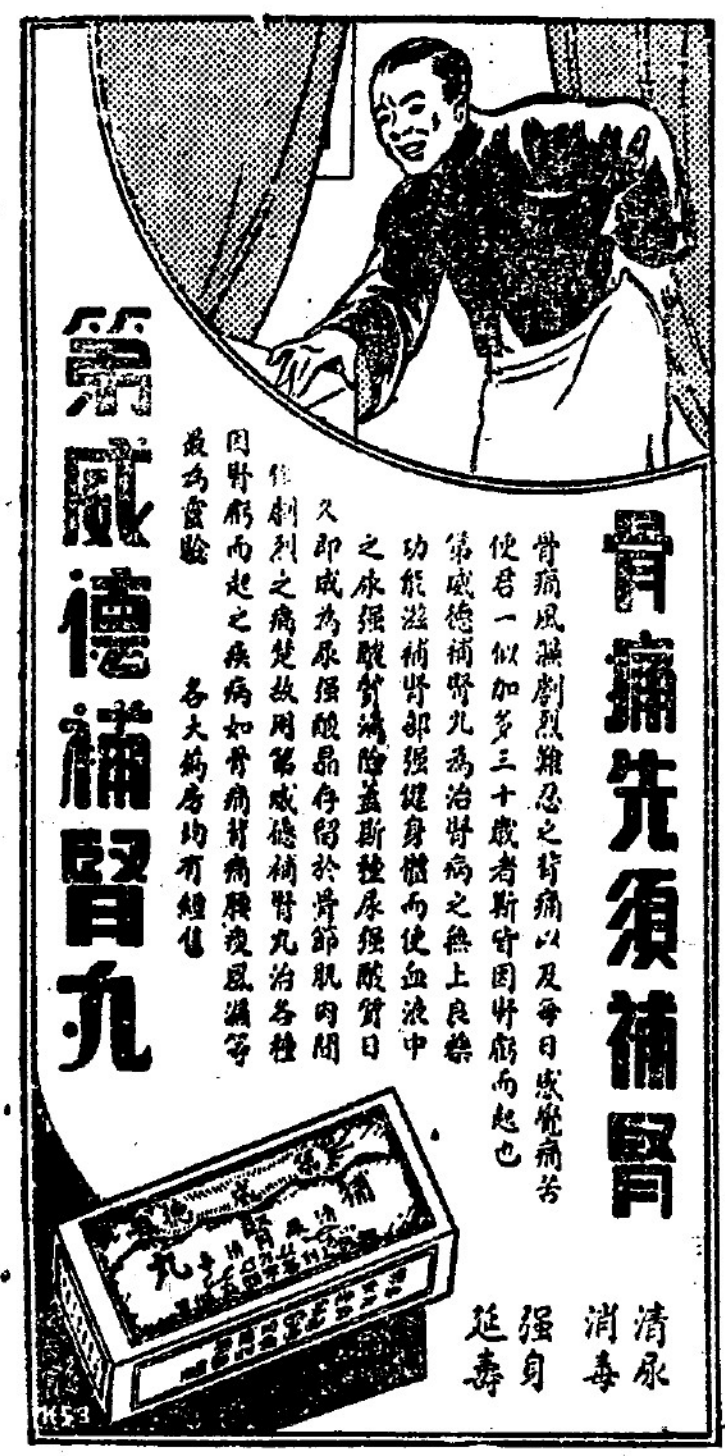 骨痛先須補腎
骨痛風濕劇烈難忍之背痛以及每日感覺痛苦
使君一似加多三十歲者斯皆因腎虧而起也
第威德補腎丸為治腎病之無上良藥
功能滋補腎部强健身體而使血液中
之尿强酸質消除蓋斯種尿强酸質日
久即成為尿强酸晶存留於骨節肌肉間
作劇烈之痛楚故用第威德補腎丸治各種
因腎虧而起之疾病如骨痛背痛腰痠風濕等
最為靈驗
各大藥房均有經售
第威德補腎丸
清尿
消毒
强身
延壽
補腎丸
K53